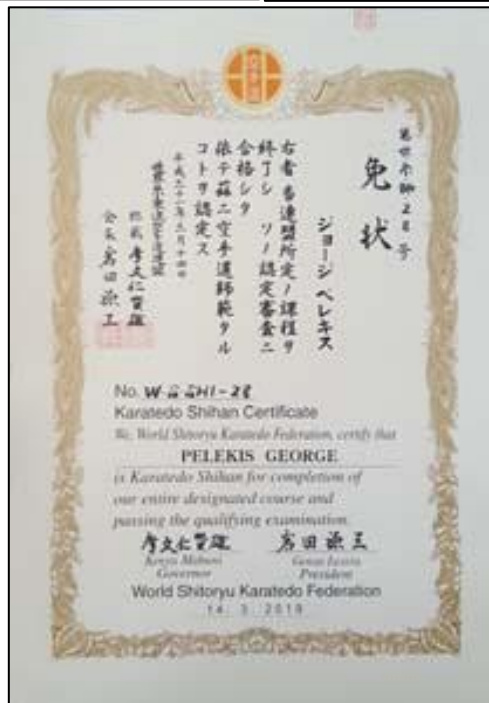 免状
ジョージ ペレキス
右者 当連盟所定ノ課程ヲ
終了シ ソノ認定審査ニ
合格シタ
依テ茲ニ空手道師範タル
コトヲ認定ス
平成三十一年三月十四日
世界糸東流空手道連盟
総裁 摩文仁賢雄
会長 岩田源三
No.
Karatedo Shihan Certificate
We, World Shitoryu Karatedo Federation, certify that
PELEKIS GEORGE
is Karatedo Shihan for completion of
our entire designated course and
passing the qualifying examination.
摩文仁賢雄 岩田源三
Kenyu Mabuni Genzo Iwata
Governor President
World Shitoryu Karatedo Federation
14. 3. 2019